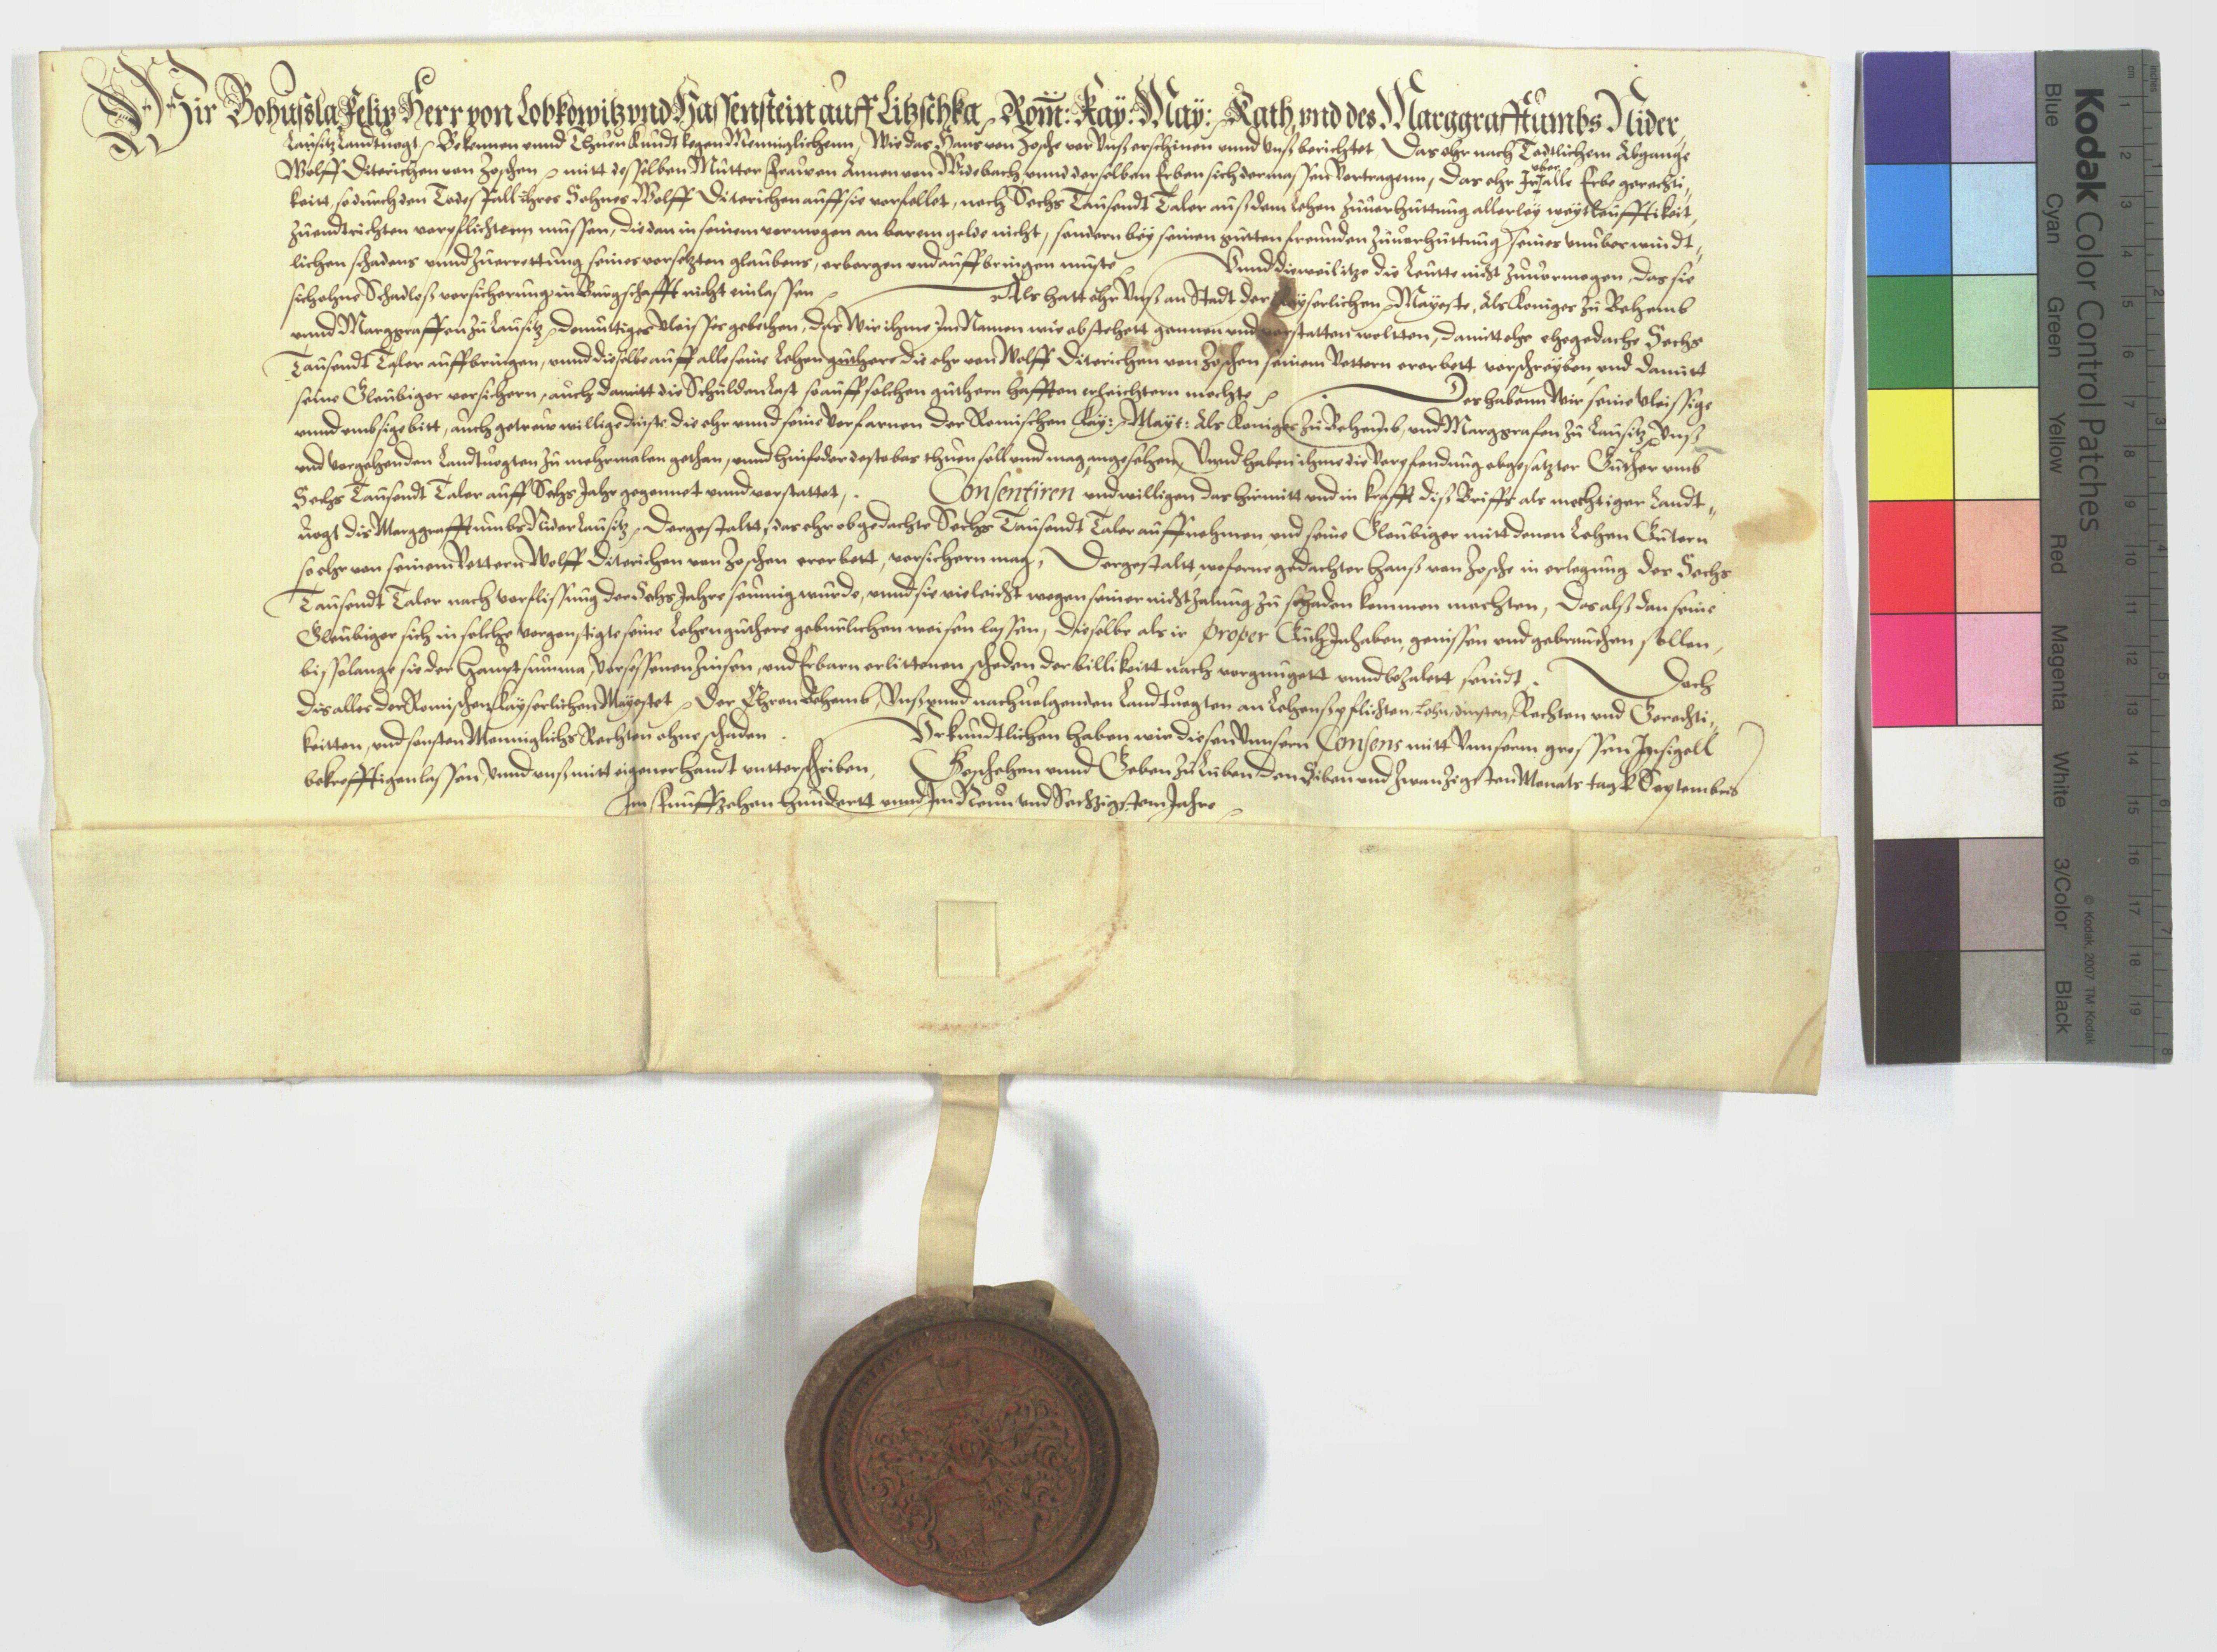 Wir Bohusla Felix Herr von Lobkowitz vnd Hassenstein auff Litzschka, Röm: Kay: May: Rath vnd des Marggrafftumbs Nider,
Lausitz Landtuogt, Bekennen vnnd Thuen kundt kegen Menniglichenn, Wie das Hans von Zosche vor Vnß erschinen vnnd Vnß berichtet, Das ehr nach Todtlichem Abgange
Wolff Diterichen von Zoschen, mitt desselben Mutter Frawen Annen von Widebach vnnd derselben Erben sich dermassen Vortragenn, Das ehr Ir vber alle Erbe gerechti,
keitt, so durch den Todes Fall ihres Sohnes Wolff Diterichen auff sie verfellet, noch Sechs Tausendt Taler auß dem Lehen zuuerhuttung allerley weytleufftikeit,
zuendtrichten vorpflichtenn mussen, die dan in seinem vermogen an barem gelde nicht, sondern bey seinen gutten freunden zuuerhuttung seines vnuberwindt,
lichen schadens vnnd zuerrettung seines vorsetzten glaubens, erborgen vnd auffbringen muste, Vnnd dieweil itzo die Leutte nicht zuuermogen, das sie
sich ohne Schadloß vorsicherung in Burgschafft nicht einlassen, Als hatt ehr Vnß an Stadt der Kayserlichen Mayeste, Als Koniges zu Behemb
vnnd Marggraffen zu Lausitz, demuttiges vleisses gebethen, das Wir ihme Im Namen wie obstehett gonnen vnd vorstatten wolten, damitt ehr ehegedachte Sechs
Tausendt Taler auffbringen, vnnd dieselbe auff alle seine Lehen guthere die ehr von Wolff Diterichen von Zoschen seinem Vettern ererbett vorschreyben, vnd damitt
seine Gleubiger vorsichern, auch damitt die Schulden Last so auff solchen guthern hafften erleichtern mochte, Des habenn Wir seine vleissige
vnnd embsige bitt, auch getrew willige dinste die ehr vnnd seine Vorfarnen der Romischen Kay: Mayt: Als Koniges zu Behemb, vnd Marggrafen zu Lausitz, Vnß
vnd vorgehenden Landtuogten zu mehrmalen gethan, vnnd hinfoder desto bas thuen soll vnd mag, angesehen, Vnnd haben ihme die Vorpfendung obgesatzter Guther vmb
Sechs Tausendt Taler auff Sechs Jahr gegonnet vnnd vorstattet, Consentiren vnd willigen das hirmitt vnd in krafft diß Briffs als mechtiger Landt,
uogt dis Marggrafftumbs Nider Lausitz, Dergestaltt, das ehr obgedachte Sechs Tausendt Taler auffnehmen, vnd seine Gleubiger mitt denen Lehen Gutern
so ehr von seinem Vettern Wolff Diterichen von Zoschen ererbett, vorsichern mag, Dergestaltt, woferne gedachter Hanß von Zosche in erlegung der Sechs
Tausendt Taler nach vorflissung der Sechs Jahre seumig wurde, vnnd sie vieleicht wegen seiner nicht zalung zu schaden kommen mochten, Das alß dan seine
Gleubiger sich in solche vorgonstigte seine Lehenguthere geburlichen weisen lassen, dieselbe als ir proper Guth Inhaben, genissen vnd gebrauchen sollen,
bis solange sie der Hauptsumma, Vorsessenen zinsen, vnd Erbarn erlittenen scheden der billikeitt nach vorgnugett vnnd bezalett seindt. Doch
dis alles der Romischen kayserlichen Mayestet, Der Chron Behemb, Vnß vnnd nachuolgenden Landtuogten an Lehenßpflichten, Lehn, dinsten, Rechten vnd Gerechti,
keitten, vnd sonsten Menniglichs Rechten ohne schaden. Vrkundtlichen haben wir diesen Vnnsern Consens mitt Vnnserm grossen Insigell
bekrefftigen lassen, Vnnd vnß mitt eigener handt vntterschriben, Geschehen vnnd Geben zu Luben den Siben vnd zwanzigsten Monats tagk Septembris
Im Funffzehen hundertt vnnd Im Neun vnd Sechzigstem Jahre
Kodak Color Control Patches
© Kodak, 2007 TM: Kodak
Blue Cyan Green Yellow Red Magenta White 3/Color Black
cm 1 2 3 4 5 6 7 8 9 10 11 12 13 14 15 16 17 18 19
inches 1 2 3 4 5 6 7 8